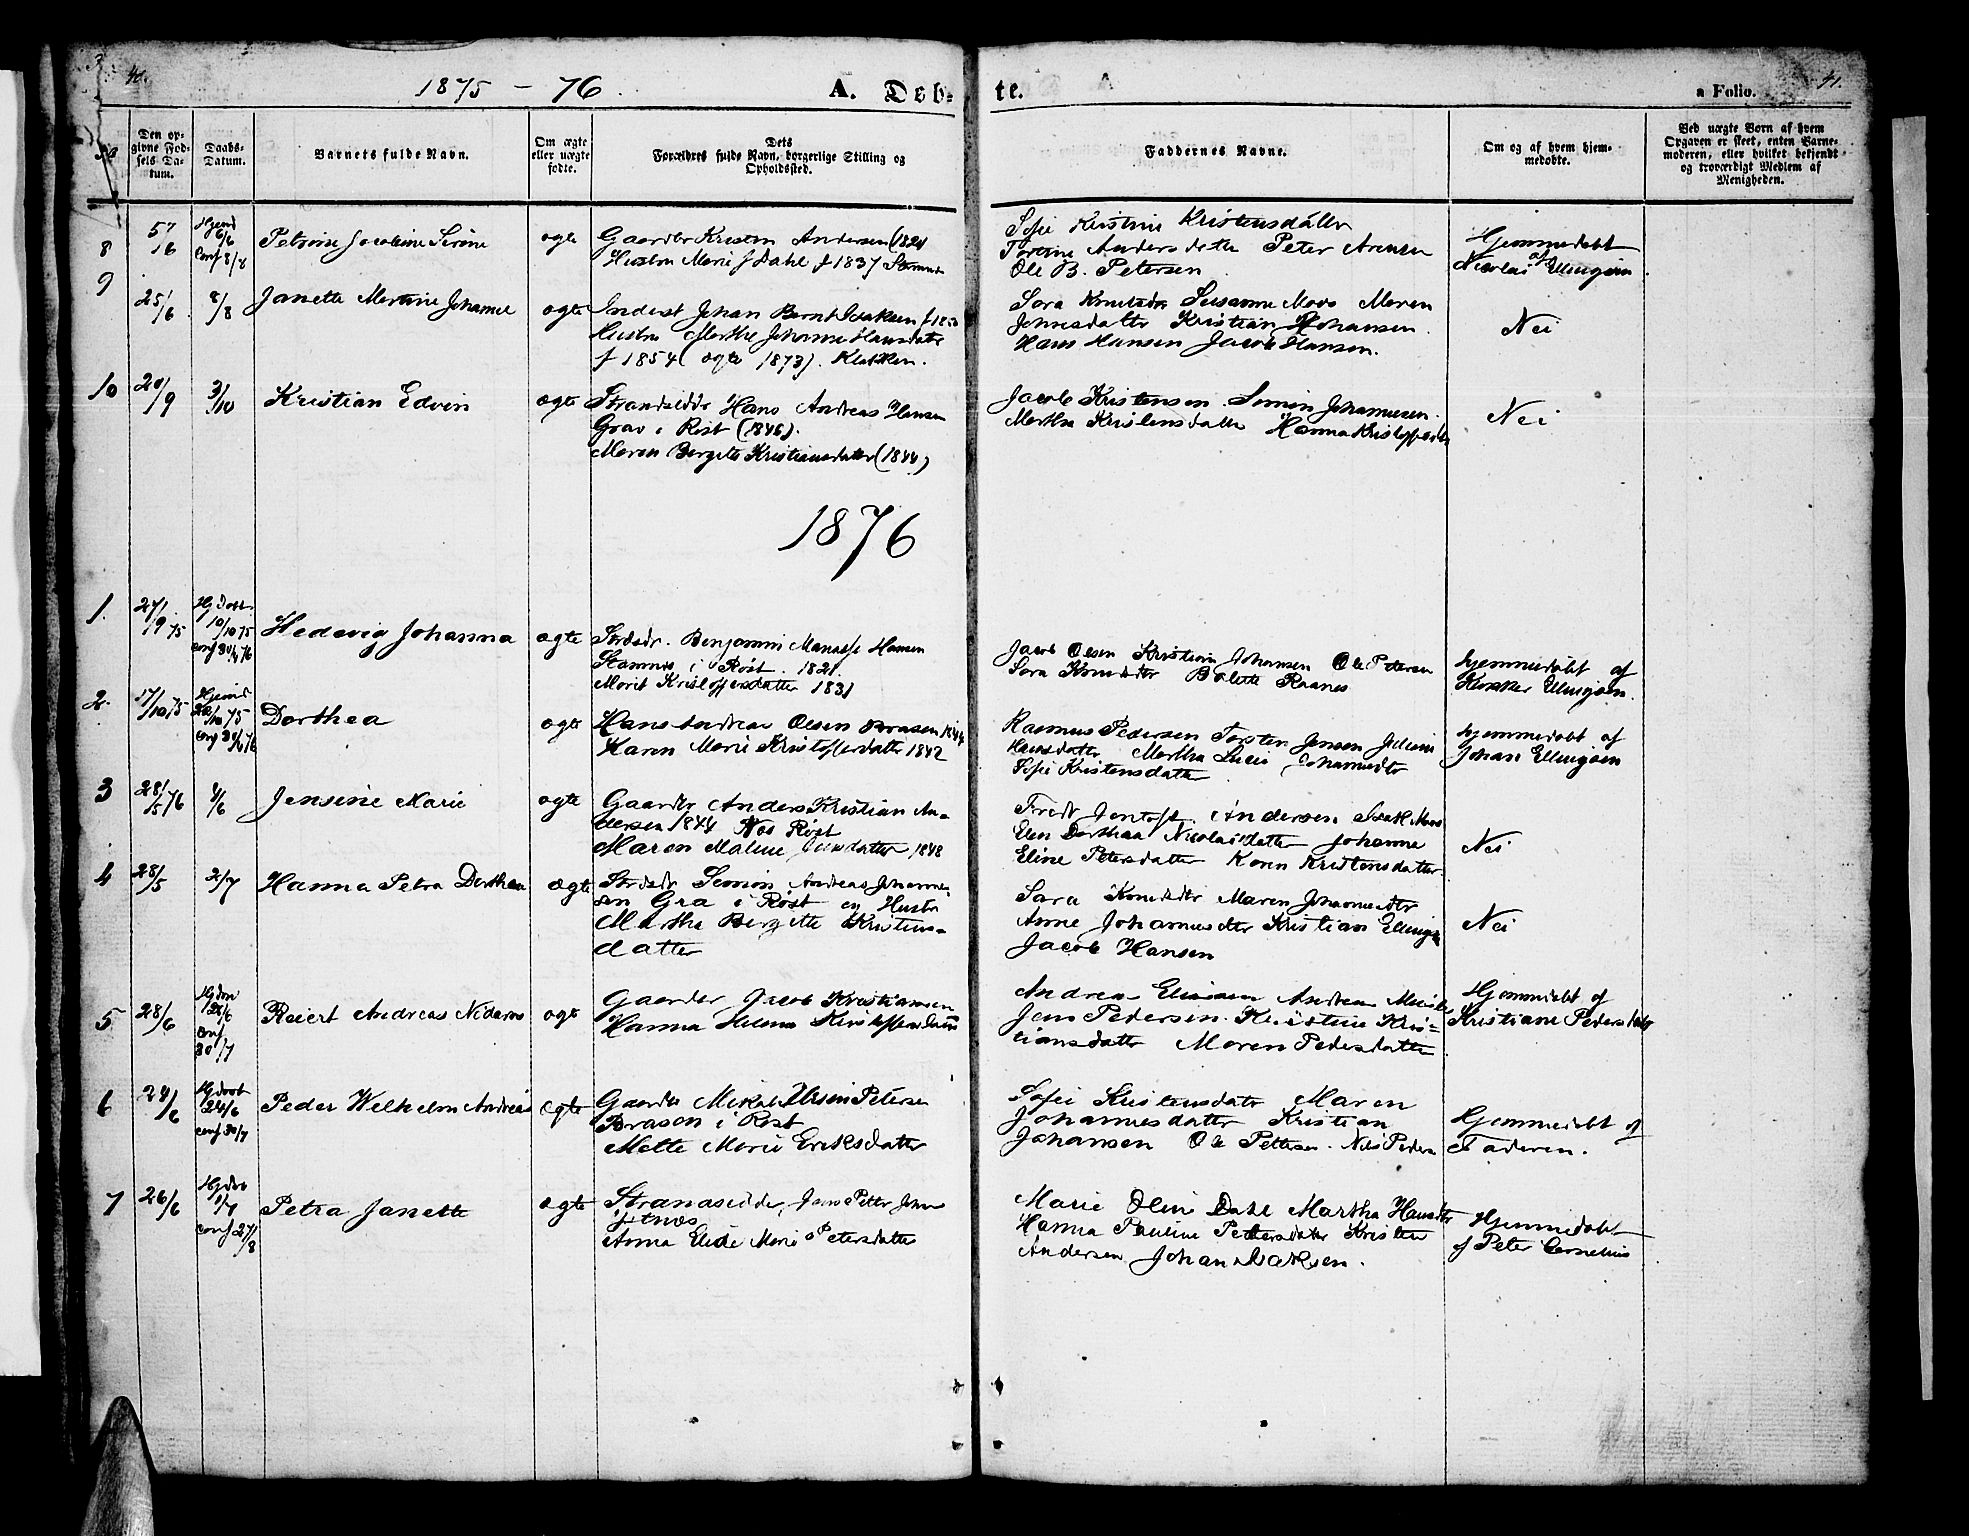 40.
1875 – 76.
A. Døb-
te.
a Folio.
41.
No
Den op-
givne Fød-
sels Da-
tum.
Daabs-
Datum.
Barnets fulde Navn.
Om ægte
eller uægte
fødte.
Dets
Forældres fulde Navn, borgerlige Stilling og
Opholdssted.
Faddernes Navne.
Om og af hvem hjem-
medøbte.
Ved uægte Børn af hvem
Opgaven er skeet, enten Barne-
moderen, eller hvilket bekjendt
og troværdigt Medlem af
Menigheden.
8
6/6
conf 8/8
Petrine Jacobine Sirine
ægte
Gaardbr Kristen Andersen (1821
Hustru Marie J Dahl f 1837
Sofie Kristine Kristensdatter
Andersdatter Peter Arensen
Ole B. Petersen
Hjemmedøbt
af
Nicolai Ellingsen
9
25/6
8/8
Janette Martine Johanne
ægte
Inderst Johan Bernt Isaksen
Hustru Marthe Johanne Hansdatter
f 1854 (ægte 1873). Klakken.
Sara Knudsdtr Susanne Moos Maren
Johnsdatter Kristian Johansen
Hans Hansen Jacob Hansen.
Nei
10
20/9
3/10
Kristian Edvin
ægte
Strandsidder Hans Andreas Hansen
Grav i Røst (1846).
Maren Bergite Kristiansdatter (1844)
Jacob Kristensen. Simon Johannesen.
Martha Kristensdatter Hanna Kristoffersdtr
Nei
1876
1.
27/9 75
Hj Døbt
10/10 75
conf 30/4 76
Hedevig Johanna
ægte
Strdsdr. Benjamin Manasse Hansen
Stamnes i Røst. 1821.
Marit Kristoffersdatter 1831
Jacob Olsen Kristian Johansen Ole Petersen
Sara Knudsdtr Bolette Raanes
hjemmedøbt af
Klokker Ellingsen.
2.
17/10 75
20/10 75
conf 30/4 76
Dorthea
ægte
Hans Andreas Olsen Brasen 1844
Karen Marie Kristoffersdatter 1842
Rasmus Pedersen Torsten Jensen
Hansdatter Martha Lucie Johannesdtr
Sofie Kristensdatter
hjemmedøbt af
Johan Ellingsen
3
28/5 76
4/6
Jensine Marie
ægte
Gaardbr Anders Kristian An-
dersen 1844 Nes Røst
Maren Malene Jensdatter 1848
Fredr Jentoft. Andersen
Elen Dorthea Nicolaisdatter Johanne
Eline Petersdatter Karen Kristensdatter
Nei
4
28/5
2/7
Hanna Petra Dorthea
ægte
Strdsdr Simon Andreas Johanne-
sen Gra i Røst og Hustru
Martha Bergitte Kristens-
datter
Sara Knudsdtr Maren Johannesdtr
Anne Johannesdtr Kristian Ellingsen
Jacob Hansen
Nei
5
28/6
28/6
conf
30/7
Reiert Andreas Nidaros
ægte
Gaardbr Jacob Kristiansen
Hanna Helena Kristoffersdatter
Andreas Eliasen Andreas
Jens Pedersen. Kristine Kris-
tiansdatter Maren Pedersdatter
Hjemmedøbt af
Kristiane Pedersdatter
6
24/6
Hj døbt
24/6
conf 30/7
Peder Welhelm Andreas
ægte
Gaardbr Mikal Petersen
Brasen i Røst
Mette Marie Eriksdatter
Sofie Kristensdatter Maren
Johannesdatter Kristian
Johansen Ole Pettersen. Nils Pedersen
Hjemmedøbt af
Faderen.
7
26/6
1/7
conf 27/8
Petra Janette
ægte
Strandsidder, Jens Petter
Anna Elide Marie Petersdatter
Marie Oline Dahl Martha Hansdtr
Hanna Pauline Pettersdatter Kristen
Andersen Johan Isaksen.
Hjemmedøbt
af Peter Cornelius